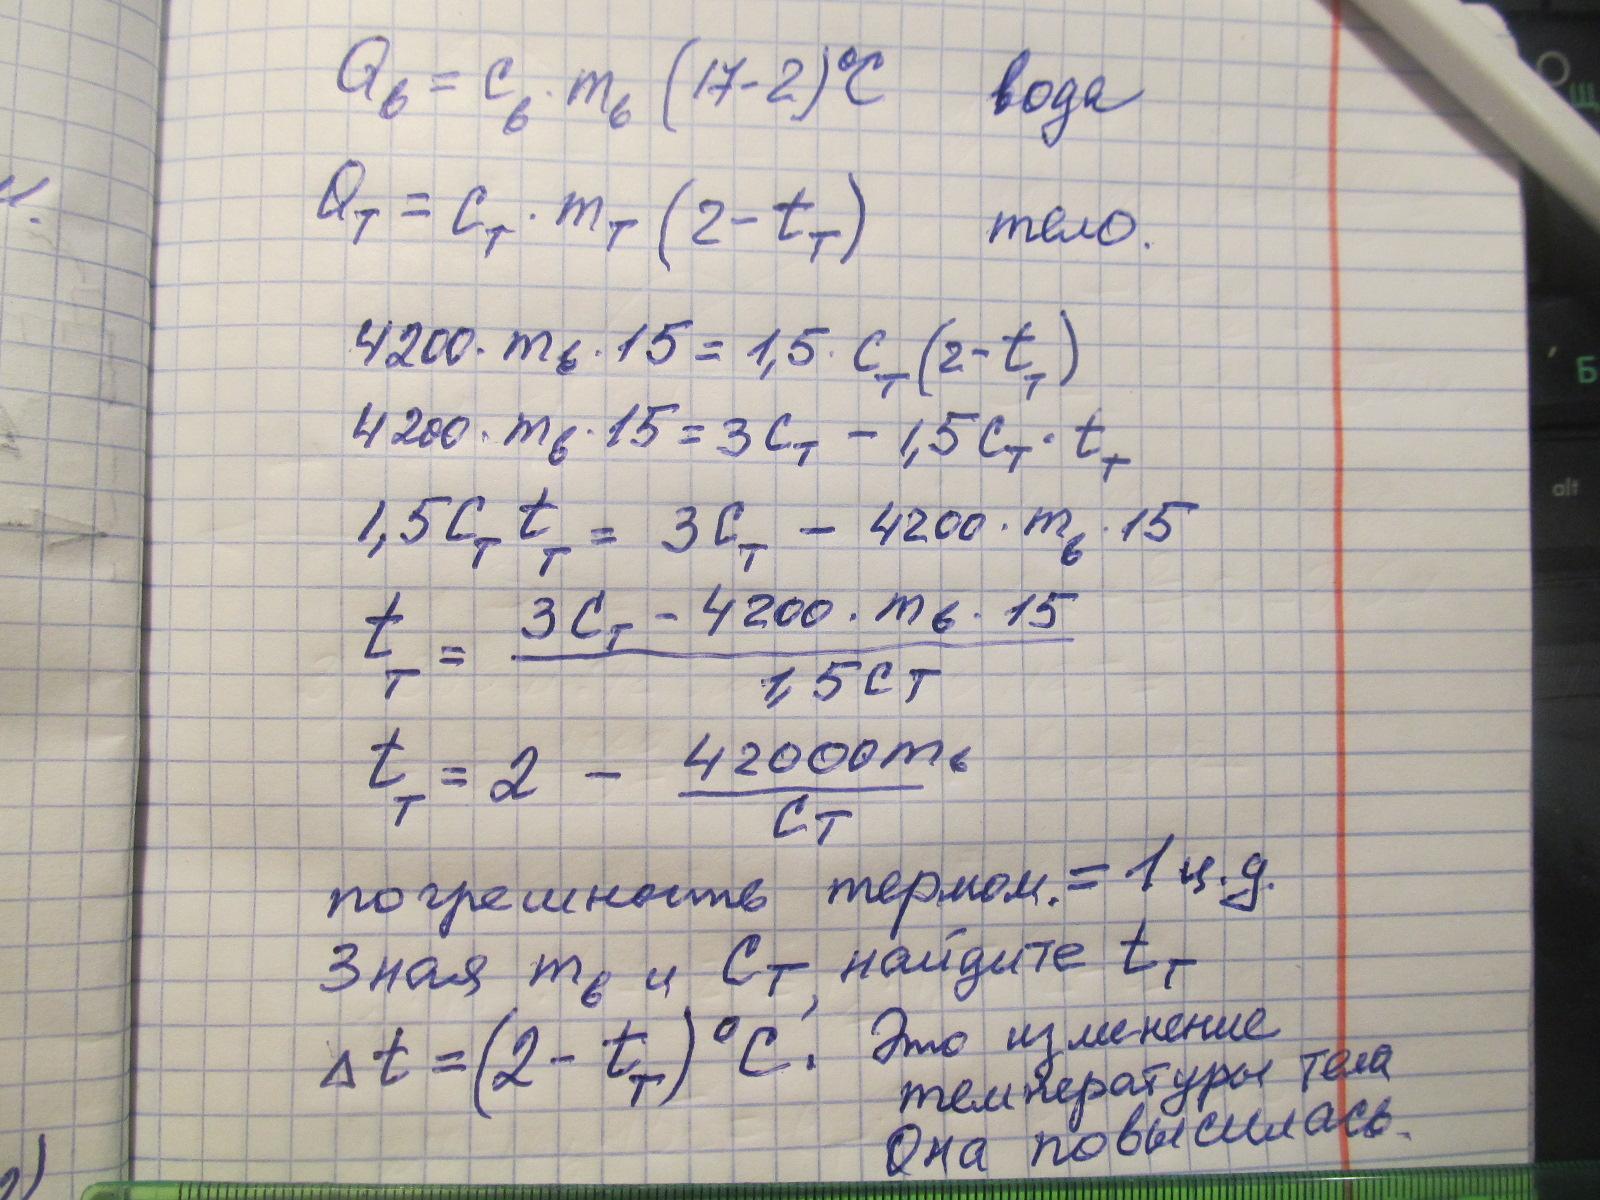 Qв = cв · mв (17-2)°C вода
Qт = cт · mт (2 - tт) тело.
4200 · mв · 15 = 1,5 · cт (2 - tт)
4200 · mв · 15 = 3cт - 1,5cт · tт
1,5cт tт = 3cт - 4200 · mв · 15
tт = (3cт - 4200 · mв · 15) / 1,5cт
tт = 2 - 42000mв / cт
погрешность термом. = 1 ц.д.
Зная mв и cт, найдите tт
Δt = (2 - tт)°C. Это изменение
температуры тела
Она повысилась.
Щ
Б
alt